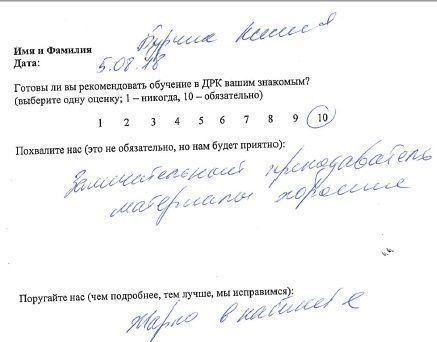 Имя и Фамилия Бурчик Ксения
Дата: 5.08.18
Готовы ли вы рекомендовать обучение в ДРК вашим знакомым?
(выберите одну оценку; 1 – никогда, 10 – обязательно)
1 2 3 4 5 6 7 8 9 10
Похвалите нас (это не обязательно, но нам будет приятно):
Замечательный преподаватель
материалы хорошие
Поругайте нас (чем подробнее, тем лучше, мы исправимся):
Жарко в кабинете